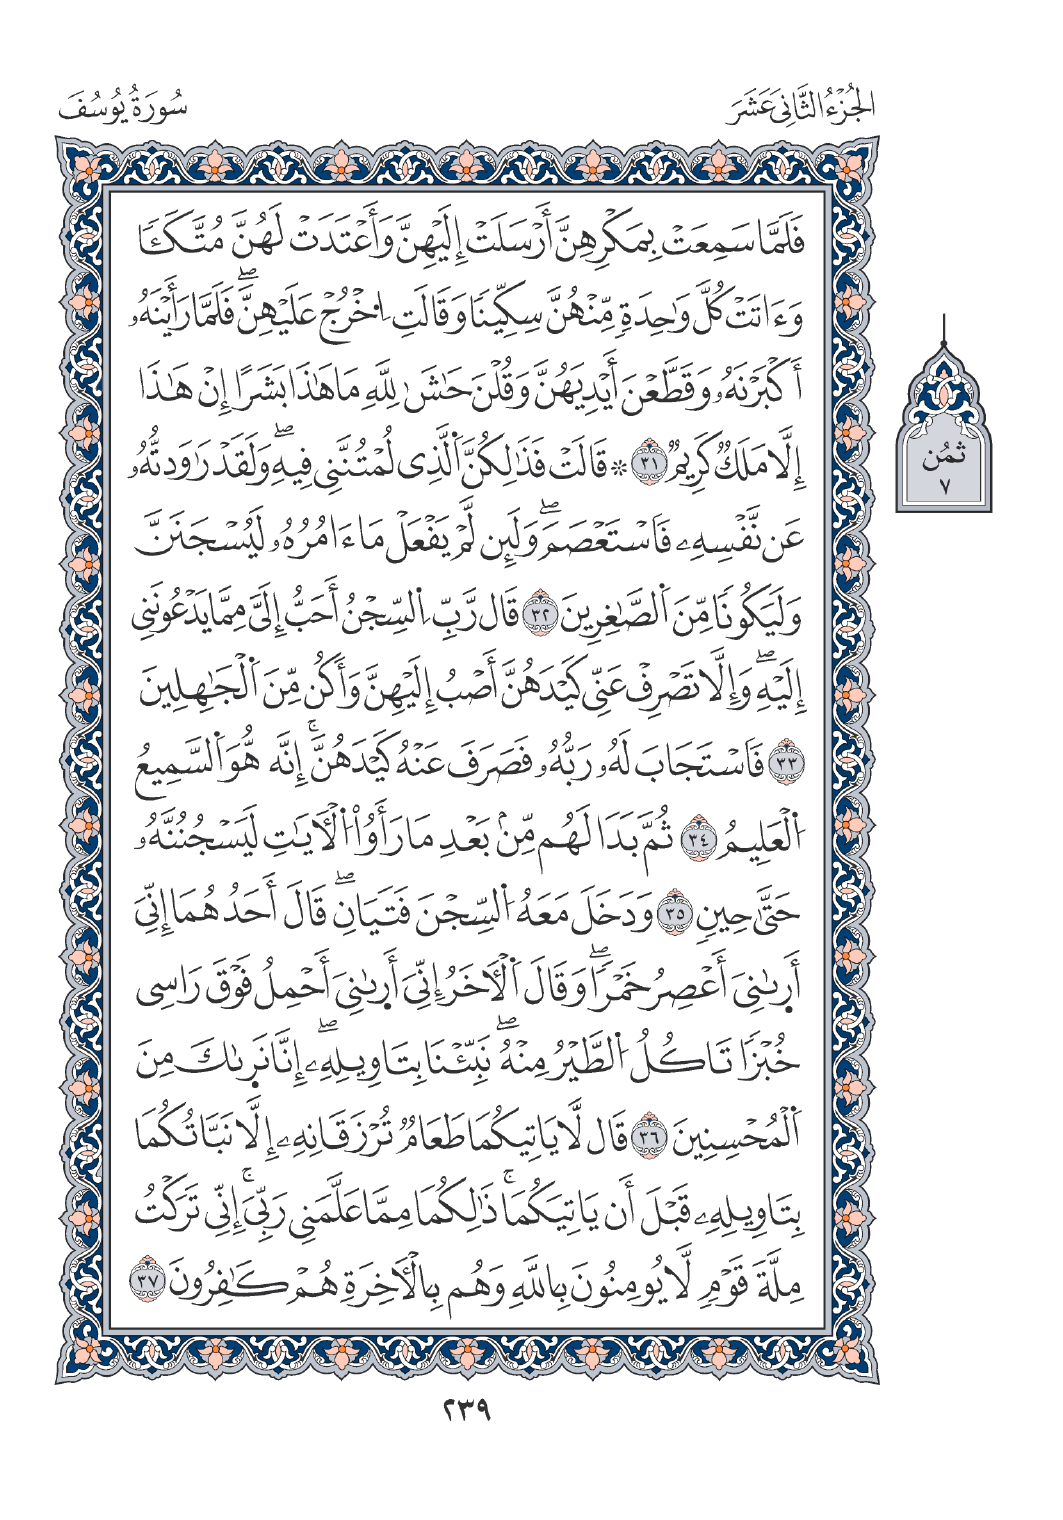 الجُزْءُ الثَّانِي عَشَرَ
سُورَةُ يُوسُفَ
فَلَمَّا سَمِعَتْ بِمَكْرِهِنَّ أَرْسَلَتْ إِلَيْهِنَّ وَأَعْتَدَتْ لَهُنَّ مُتَّكَـًٔا
وَءَاتَتْ كُلَّ وَٰحِدَةٖ مِّنْهُنَّ سِكِّينٗا وَقَالَتِ اِ۟خْرُجْ عَلَيْهِنَّۖ فَلَمَّا رَأَيْنَهُۥ
أَكْبَرْنَهُۥ وَقَطَّعْنَ أَيْدِيَهُنَّ وَقُلْنَ حَٰشَ لِلهِ مَا هَٰذَا بَشَرًا إِنْ هَٰذَا
إِلَّا مَلَكٞ كَرِيمٞ ٣١ ۞ قَالَتْ فَذَٰلِكُنَّ اَ۬لَّذِي لُمْتُنَّنِي فِيهِۖ وَلَقَدْ رَٰوَدتُّهُۥ
عَن نَّفْسِهِۦ فَاسْتَعْصَمَۖ وَلَئِن لَّمْ يَفْعَلْ مَا ءَامُرُهُۥ لَيُسْجَنَنَّ
وَلَيَكُونٗا مِّنَ اَ۬لصَّٰغِرِينَ ٣٢ قَالَ رَبِّ اِ۬لسِّجْنُ أَحَبُّ إِلَيَّ مِمَّا يَدْعُونَنِي
إِلَيْهِۖ وَإِلَّا تَصْرِفْ عَنِّي كَيْدَهُنَّ أَصْبُ إِلَيْهِنَّ وَأَكُن مِّنَ اَ۬لْجَٰهِلِينَ
٣٣ فَاسْتَجَابَ لَهُۥ رَبُّهُۥ فَصَرَفَ عَنْهُ كَيْدَهُنَّۚ إِنَّه هُّوَ اَ۬لسَّمِيعُ
اُ۬لْعَلِيمُ ٣٤ ثُمَّ بَدَا لَهُم مِّنۢ بَعْدِ مَا رَأَوُاْ اُ۬لْأٓيَٰتِ لَيَسْجُنُنَّهُۥ
حَتَّىٰ حِينٖ ٣٥ وَدَخَلَ مَعَهُ اُ۬لسِّجْنَ فَتَيَانِۖ قَالَ أَحَدُهُمَا إِنِّيَ
أَر۪ىٰنِيَ أَعْصِرُ خَمْرٗاۖ وَقَالَ اَ۬لْأٓخَرُ إِنِّيَ أَر۪ىٰنِيَ أَحْمِلُ فَوْقَ رَاسِي
خُبْزٗا تَاكُلُ اُ۬لطَّيْرُ مِنْهُۖ نَبِّئْنَا بِتَاوِيلِهِۦۖ إِنَّا نَر۪ىٰكَ مِنَ
اَ۬لْمُحْسِنِينَ ٣٦ قَال لَّا يَاتِيكُمَا طَعَامٞ تُرْزَقَانِهِۦ إِلَّا نَبَّاتُكُمَا
بِتَاوِيلِهِۦ قَبْلَ أَن يَاتِيَكُمَاۚ ذَٰلِكُمَا مِمَّا عَلَّمَنِي رَبِّيَۚ إِنِّي تَرَكْتُ
مِلَّةَ قَوْمٖ لَّا يُومِنُونَ بِاللَّهِ وَهُم بِالْأٓخِرَةِ هُمْ كَٰفِرُونَ ٣٧
ثُمُن
٧
٢٣٩